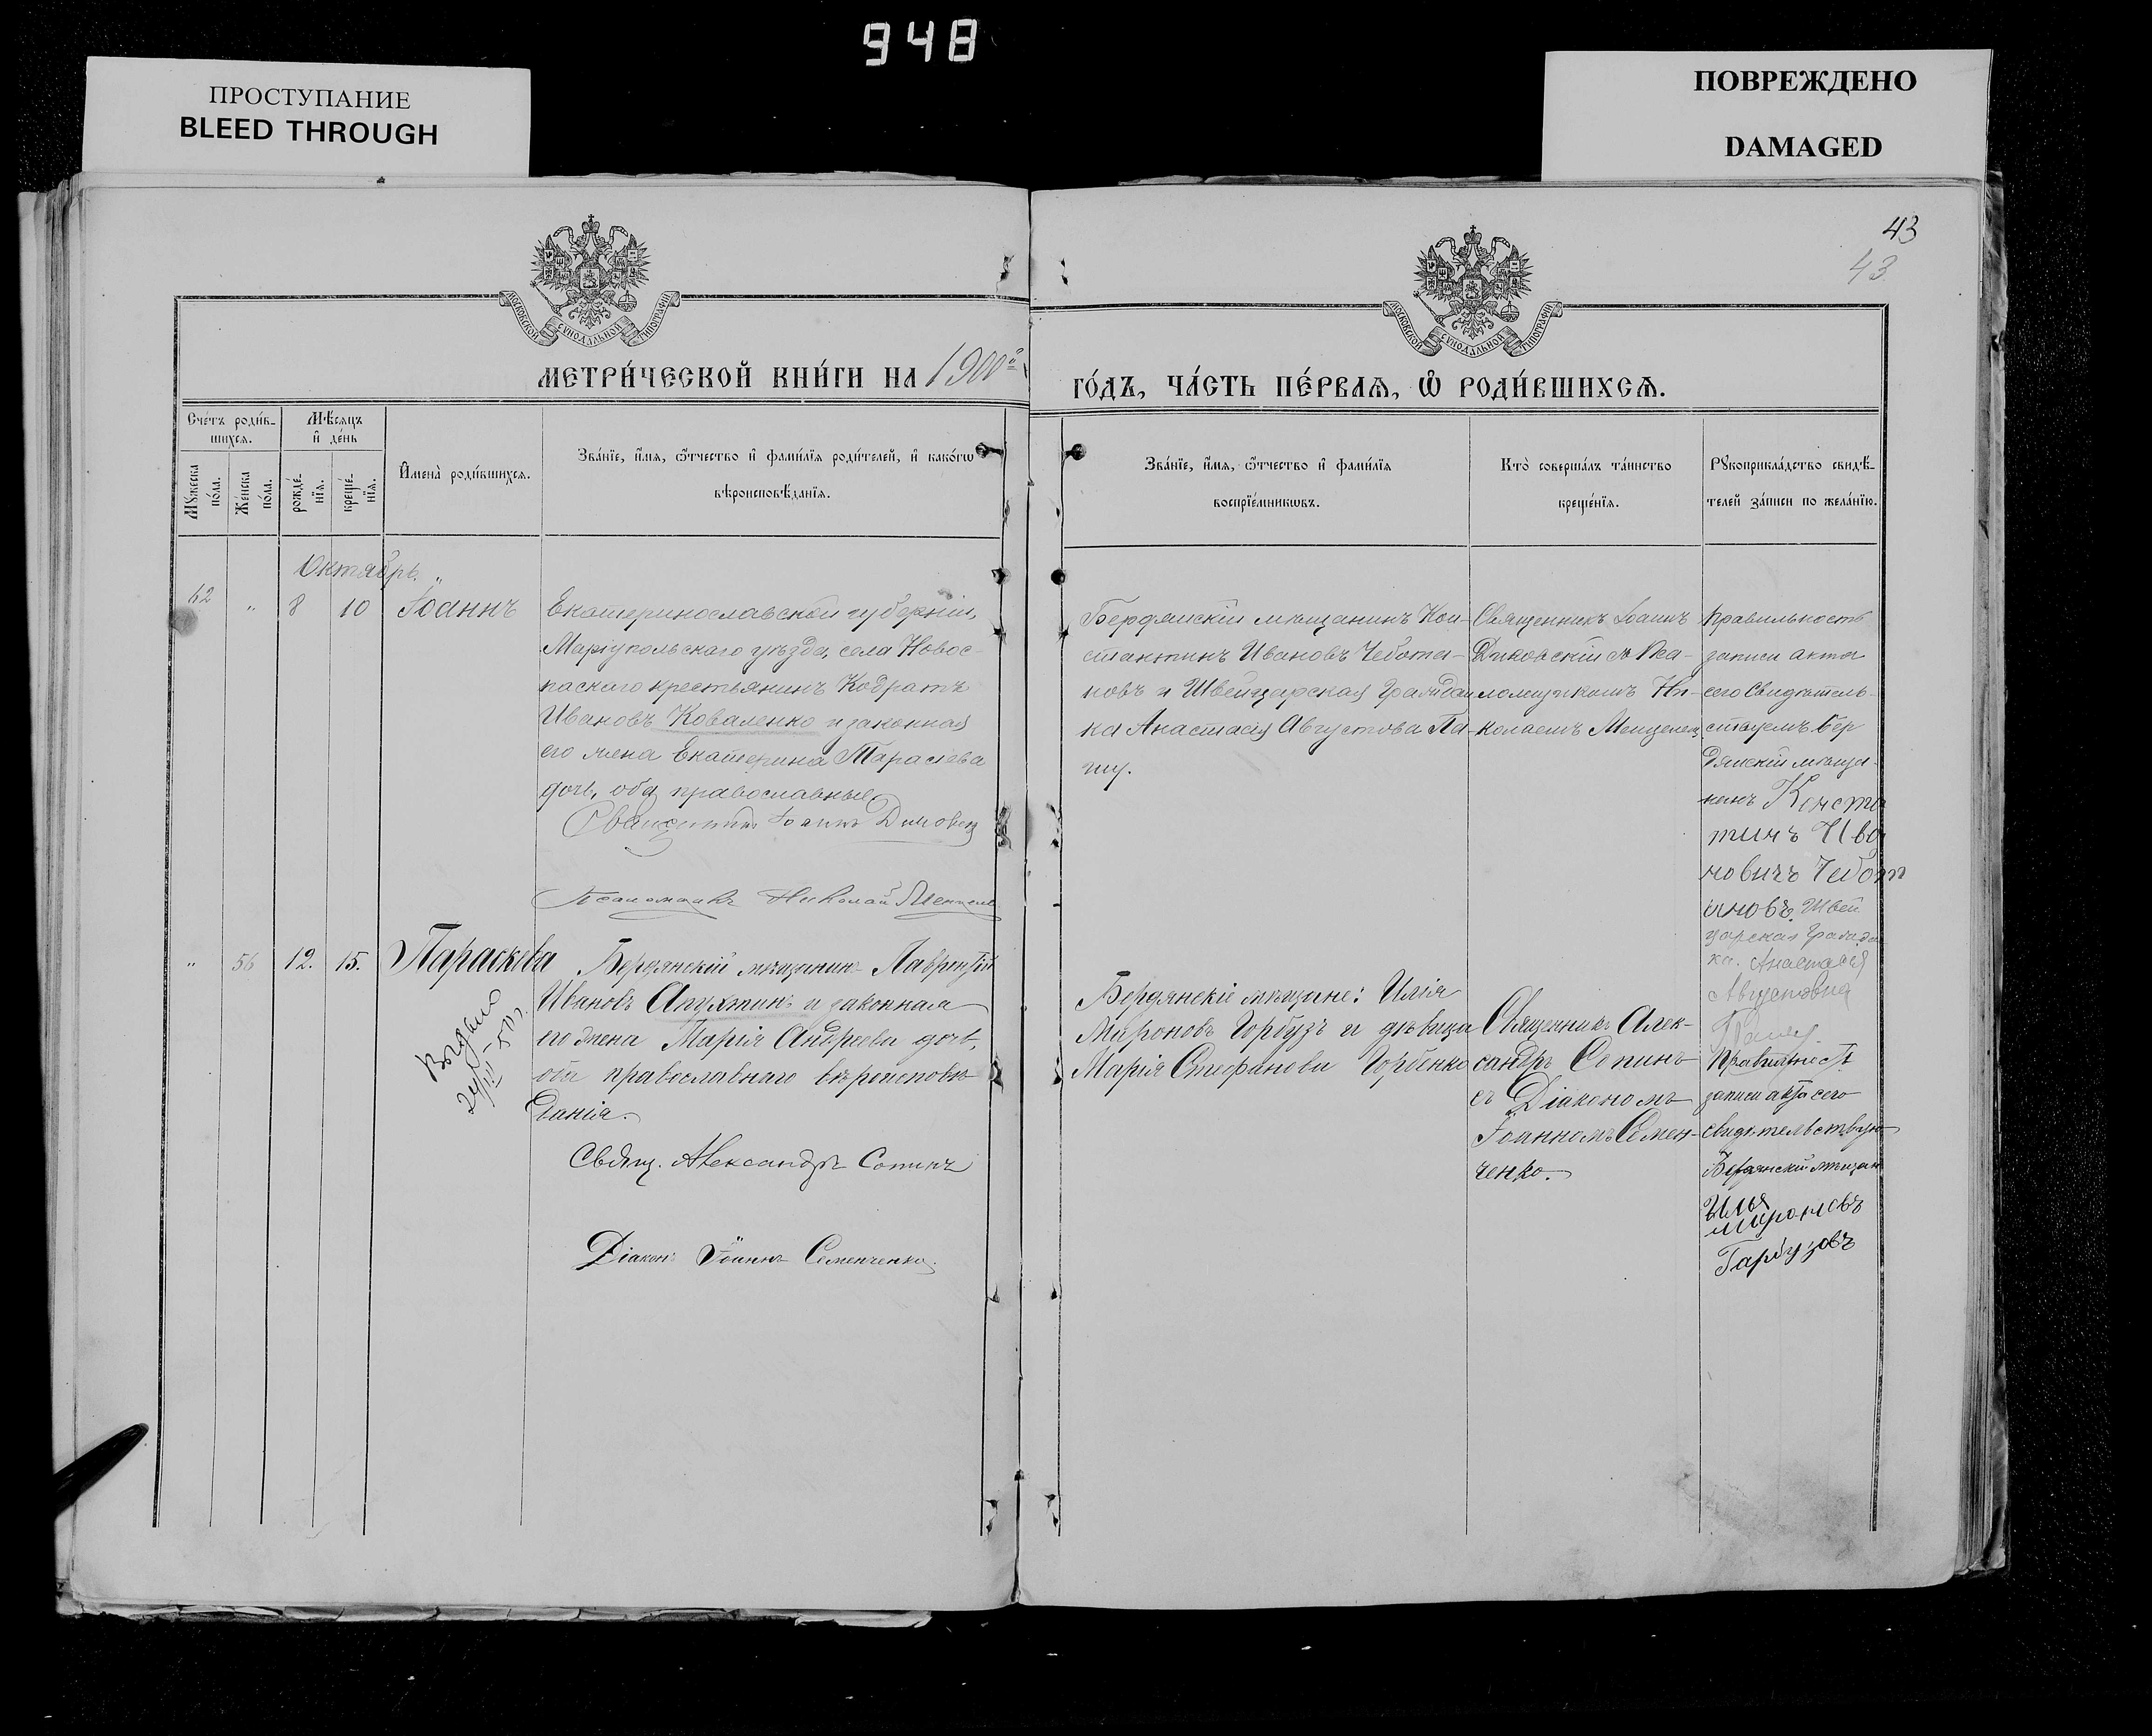 948
ПРОСТУПАНИЕ
BLEED THROUGH
ПОВРЕЖДЕНО
DAMAGED
43
43
МОСКОВСКОЙ СѴНОДАЛЬНОЙ ТИПОГРАФІИ
МОСКОВСКОЙ СѴНОДАЛЬНОЙ ТИПОГРАФІИ
МЕТРИ́ЧЕСКОЙ КНИ́ГИ НА 1900й
ГО́ДЪ, ЧА́СТЬ ПЕ́РВАѦ, Ѽ РОДИ́ВШИХСѦ.
Сче́тъ роди́в-
шихсѧ.
Мѣсяцъ
и҆ де́нь
Мꙋжеска
по́ла.
Же́нска
по́ла.
рожде́-
нїѧ.
креще́-
нїѧ.
И҆мена̀ роди́вшихсѧ.
Зва́нїе, и҆́мѧ, ѻ҆́тчество и҆ фами́лїѧ роди́телей, и҆ како́гѡ
вѣроисповѣ́данїѧ.
Зва́нїе, и҆́мѧ, ѻ҆́тчество и҆ фами́лїѧ
воспрїе́мникѡвъ.
Кто̀ соверша́лъ та́инство
креще́нїѧ.
Рꙋкоприкла́дство свидѣ́-
телей за́писи по жела́нїю.
Октябрь.
62 " 8 10 Іоаннъ
Екатеринославской губерніи,
Маріупольскаго уѣзда, села Новос-
паскаго крестьянинъ Кодратъ
Ивановъ Коваленко и законная
его жена Екатерина Тарасіева
дочь, оба православные
Священникъ Іоаннъ
Псаломщикъ Николай
Бердянскій мѣщанинъ Кон-
стантинъ Ивановъ Чебота-
новъ и Швейцарская Граждан
ка Анастасія Августова Па-
Священникъ Іоаннъ
Диковскій съ Пса-
ломщикомъ Ни-
колаемъ
Правильность
записи акта
сего Свидѣтель-
ствуемъ Бер
дянскій мѣща-
нинъ Конста
тинъ Ива
новичъ Чебот
ановъ. Швей
царская Гражда
ка. Анастасія
Августовна
" 56 12. 15. Параскева
Выдано
24/III-50 г.
Бердянскій мѣщанинъ Лаврентій
Ивановъ Апухтинъ и законная
его жена Марія Андреева дочь,
оба православнаго вѣроисповѣ-
данія.
Свящ. Александръ Сопинъ
Діаконъ Іоаннъ Семенченко.
Бердянскіе мѣщане: Илія
Мироновъ Горбузъ и дѣвица
Марія Стефанова Горбенко
Священникъ Алек-
сандръ Сопинъ
съ Діакономъ
Іоанномъ Семен-
ченко.
Правильность
записи акта сего
свидѣтельствую
Бердянскій мѣщан
Илья
Мироновъ
Гарбузовъ